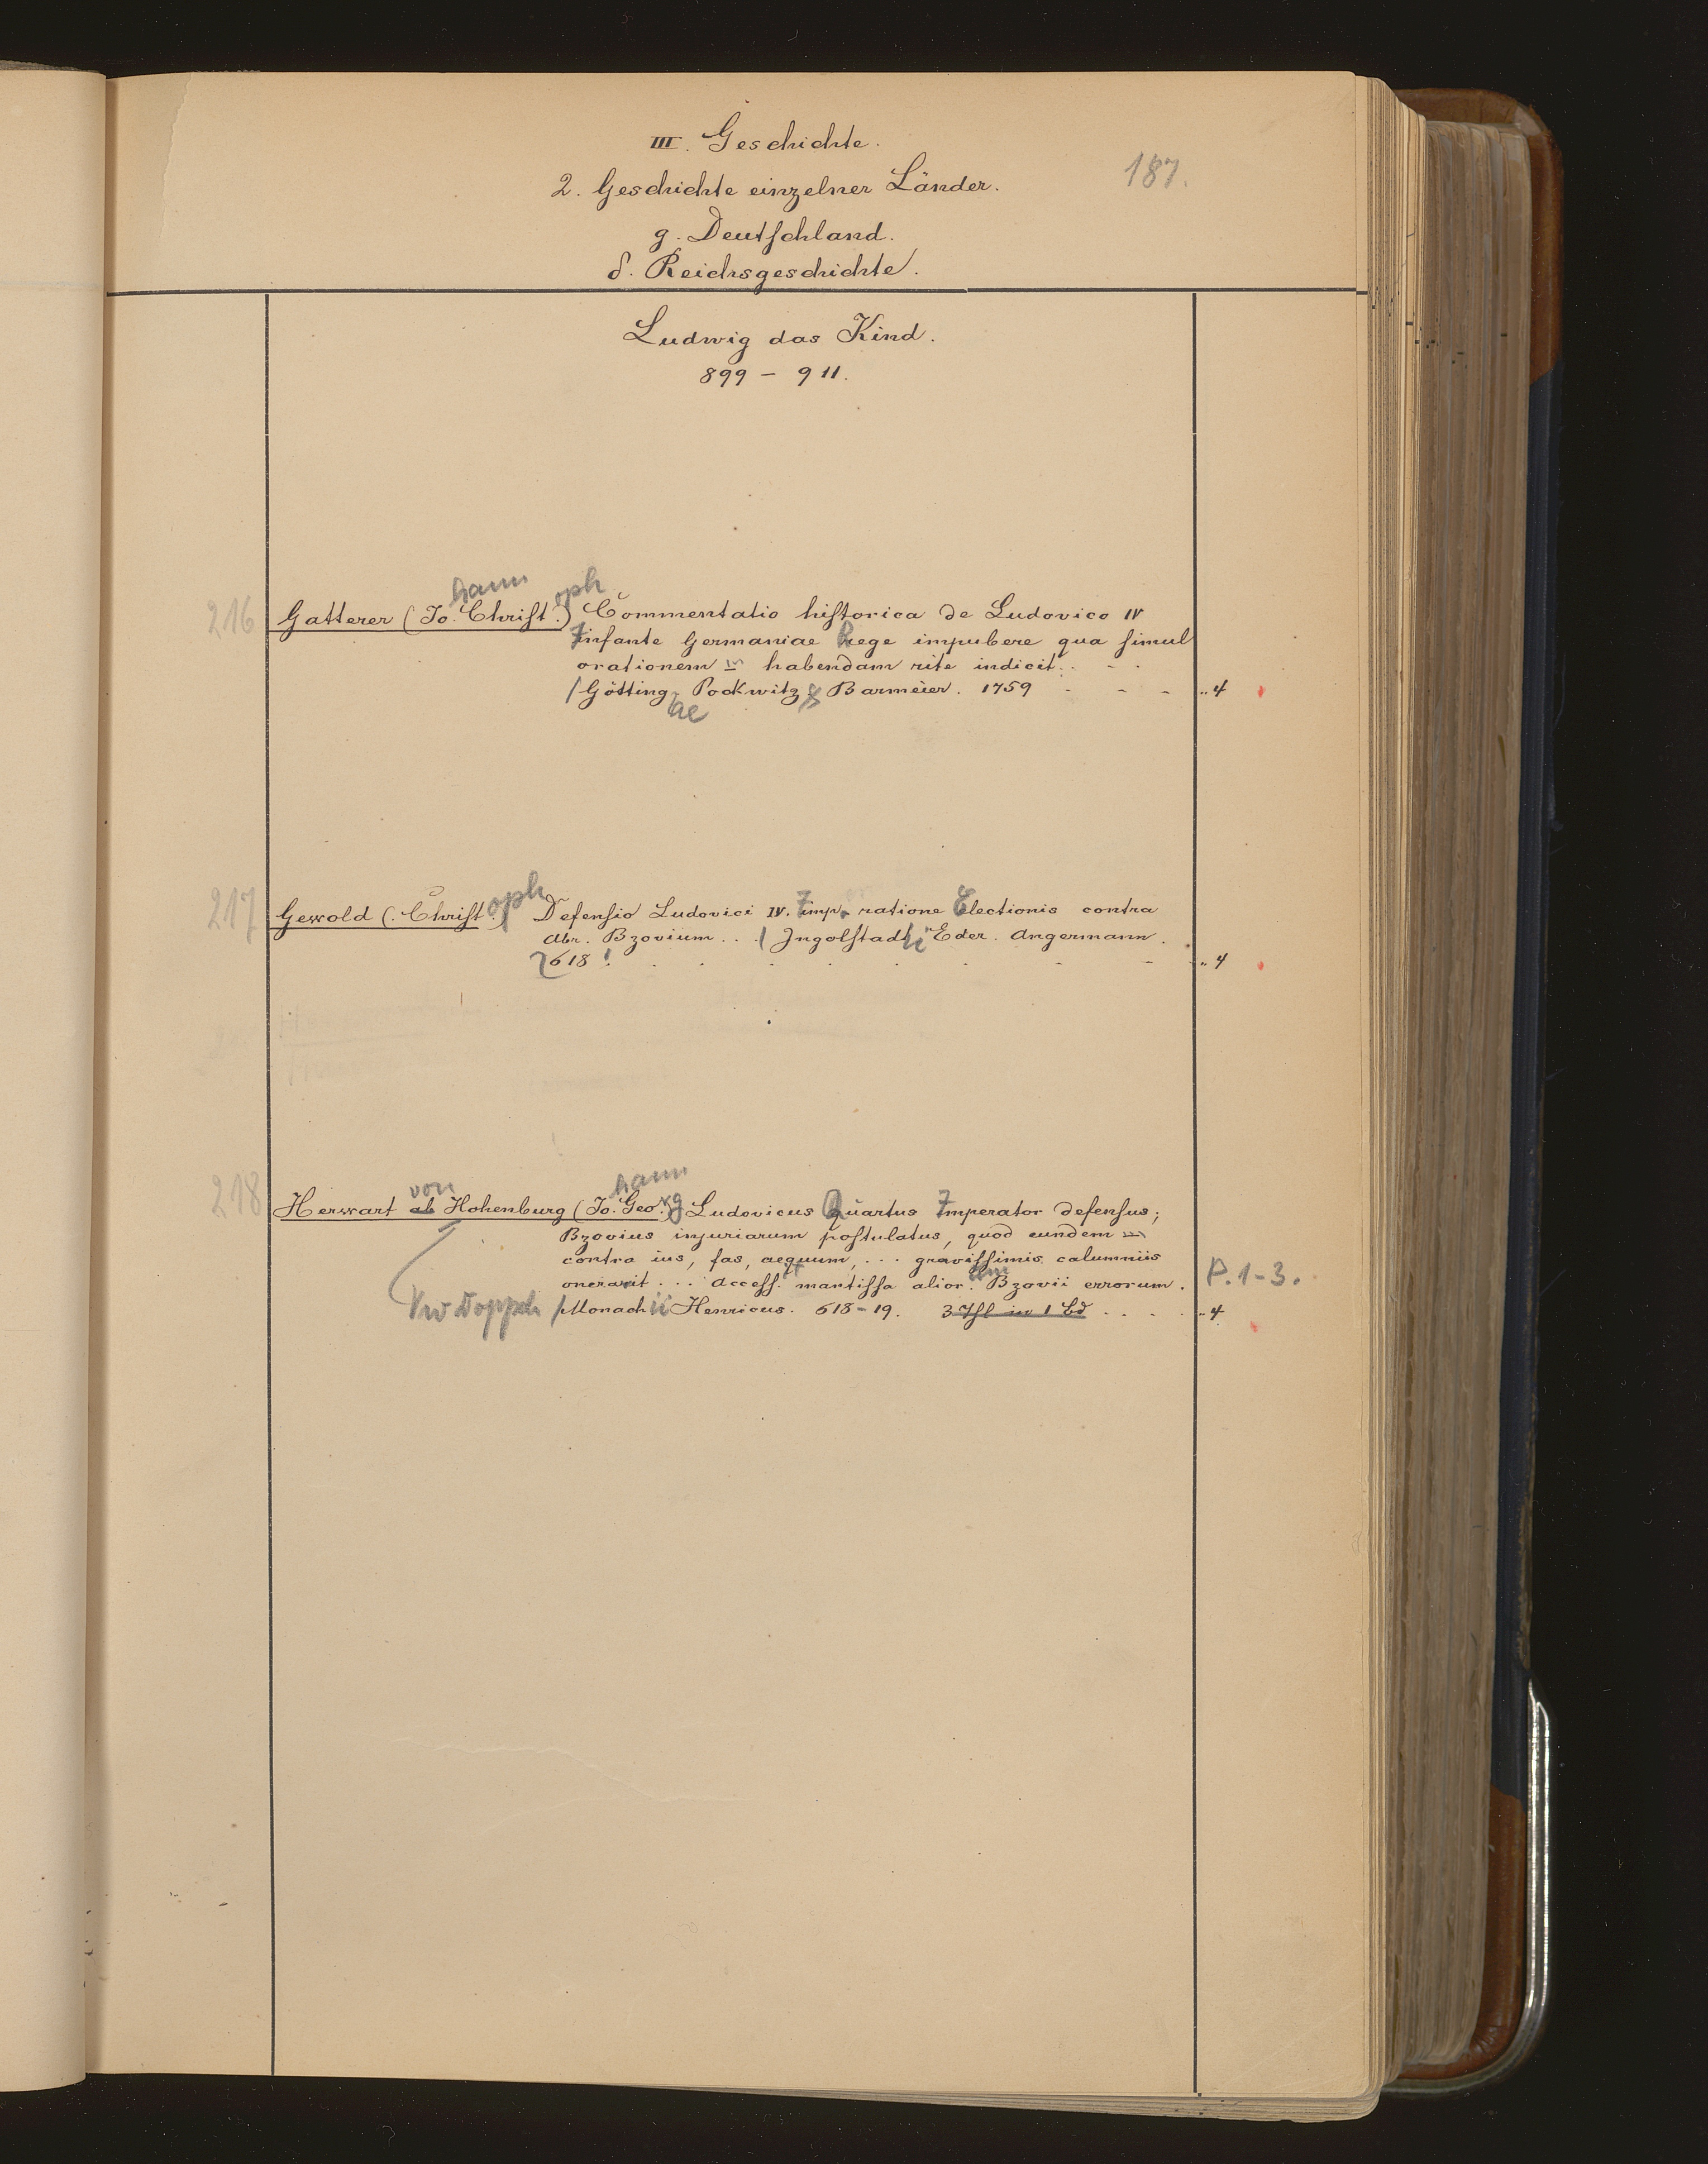 III. Geschichte.
187.
2. Geschichte einzelner Länder.
g. Deutschland.
δ. Reichsgeschichte.
Ludwig das Kind.
899 – 911.
hann oph
216 Gatterer (Jo. Christ.) Commentatio historica de Ludovico IV
Infante Germaniae Rege impubere qua simul
orationem habendam rite indicit. . - .
/ Götting. Pockwitz & Barmeier. 1759 - - - .. 4
ae
oph
217 Gewold (Christ.) Defensio Ludovici IV. Imp. ratione Electionis contra
Abr. Bzovium . . . / Ingolstadii Eder. Angermann.
1618! . . . . . . - .. 4
von hann
218 Herwart ab Hohenburg (Jo. Georg) Ludovicus Quartus Imperator defensus;
Bzovius injuriarum postulatus, quod eundem
contra ius, fas, aequum, . . . gravissimis calumniis
um
oneravit . . . Access. mantissa alior. Bzovii errorum. P. 1-3.
Vw Doppel / Monachii Henricus. 618-19. 3 Thl in 1 Bd . . . . .. 4